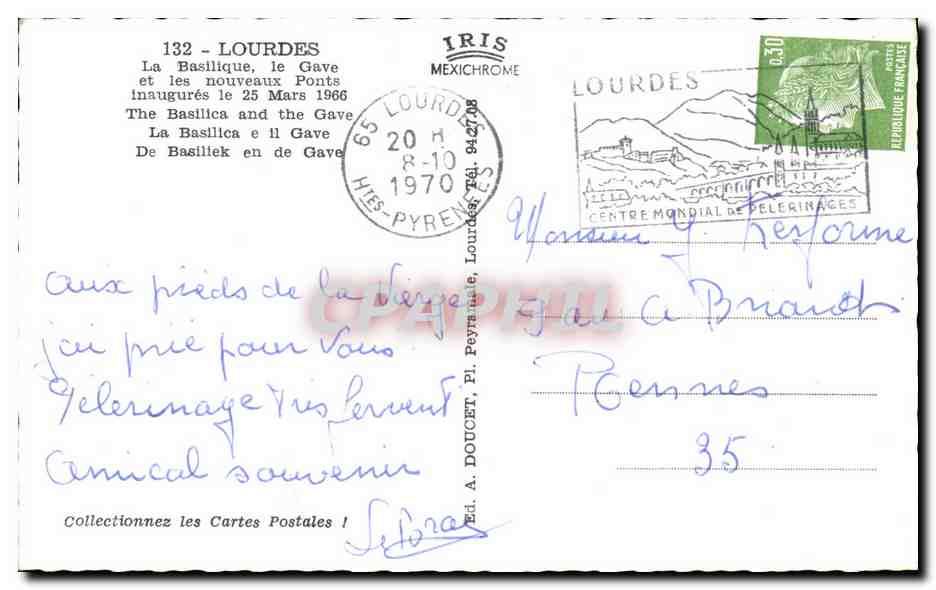 132 - LOURDES
La Basilique, le Gave
et les nouveaux Ponts
inaugurés le 25 Mars 1966
The Basilica and the Gave
La Basilica e il Gave
De Basiliek en de Gave
IRIS
MEXICHROME
65 LOURDES
20 H
8-10
1970
HTES-PYRENEES
LOURDES
CENTRE MONDIAL DE PELERINAGES
0,30
POSTES
REPUBLIQUE FRANÇAISE
Aux pieds de la Vierge
j'ai prié pour vous
Pélerinage très fervent
Amical souvenir
Collectionnez les Cartes Postales !
Ed. A. DOUCET, Pl. Peyramale, Lourdes, Tél. 94.27.08
Monsieur Y.
9 av A Briand
Rennes
35
CPAPHIL